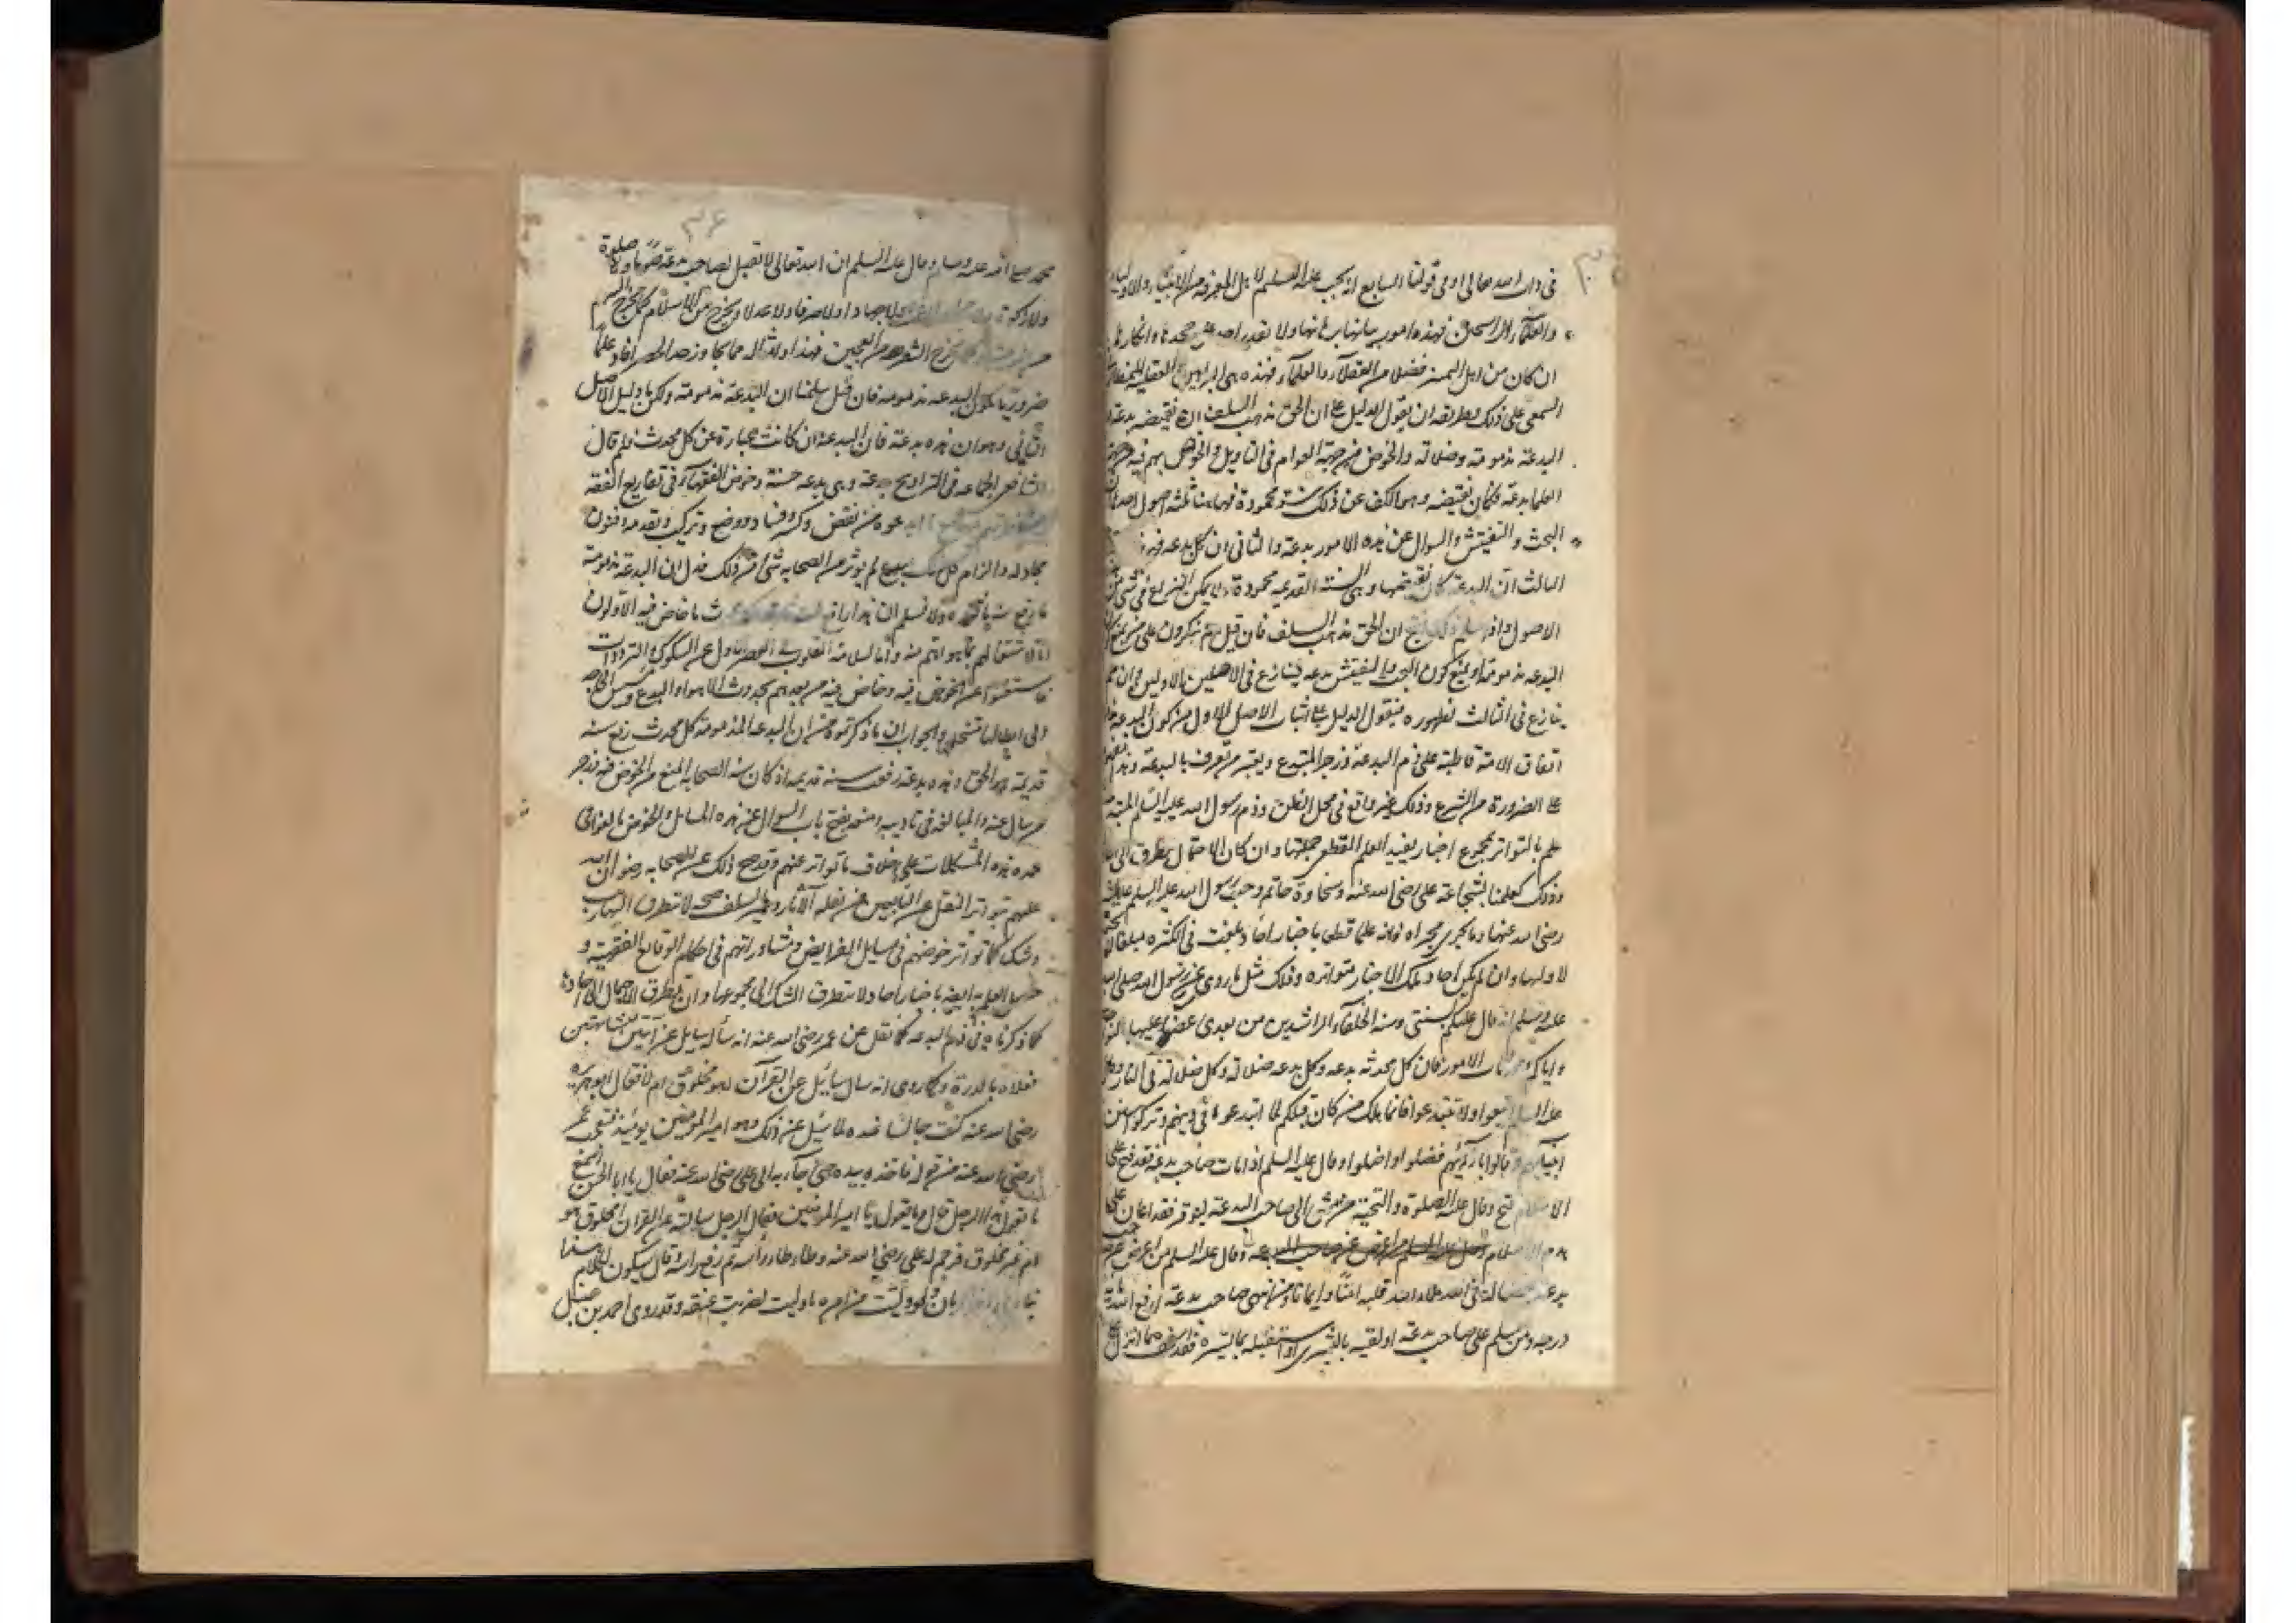 في ذات الله تعالى او في قولنا السابع انه يجب عليه التسليم لاهل المعرفة من الانبياء والاولياء
والعلماء الراسخين فهذه امور بيانها برهانها ولا يقدر احد على جحدها وانكارها
ان كان من اهل التمييز فضلا من العقلاء والعلماء فهذه هي البراهين العقلية النمط الثاني
السمعي على ذلك وطريقه ان يقول الدليل على ان الحق مذهب السلف ان نقيضه بدعة
البدعة مذمومة وضلالة والخوض من جهة العوام في التاويل والخوض بهم فيه من جهة
العلما بدعة فكان نقيضه وهو الكف عن ذلك سنة محمودة فهاهنا ثلثة اصول احدها ان
البحث والتفتيش والسوال عن هذه الامور بدعة والثاني ان كل بدعة فهو
الثالث ان البدعة كان نقيضها وهي السنة القديمة محمودة ولا يمكن النزاع في شي من
الاصول واذا سلم ذلك ينتج ان الحق مذهب السلف فان قيل بم تنكرون على من يمنع كون
البدعة مذمومة او يمنع كون البحث والتفتيش بدعة ينازع في الاصلين الاولين وان لم
ينازع في الثالث لظهوره فنقول الدليل على اثبات الاصل الاول من كون البدعة
اتفاق الامة قاطبة على ذم البدعة وزجر المبتدع وتعيير من يعرف بالبدعة وهذا
على الضرورة من الشرع وذلك غير واقع في محل الظن وذم رسول الله عليه السلم البدعة
علم بالتواتر بمجموع اخبار يفيد العلم القطعي جملتها وان كان الاحتمال يتطرق الى
وذلك كعلمنا بشجاعة علي رضي الله عنه وسخاوة حاتم وحب رسول الله عليه السلم عايشة
رضي الله عنها وما يجري مجراه فانه علم قطعا باخبار احاد بلغت في الكثرة مبلغا
لا ولها وان لم يكن احاد تلك الاخبار متواترة وذلك مثل ما روي عن رسول الله صلى الله
عليه وسلم انه قال عليكم بسنتي وسنة الخلفاء الراشدين من بعدي عضوا عليها بالنواجذ
واياكم ومحدثات الامور فان كل محدثة بدعة وكل بدعة ضلالة وكل ضلالة في النار وقال
عليه السلم اتبعوا ولا تبتدعوا فانما هلك من كان قبلكم لما ابتدعوا في دينهم وتركوا سنن
انبيائهم وقالوا بارائهم فضلوا واضلوا وقال عليه السلم اذا مات صاحب بدعة فقد فتح على
الاسلام فتح وقال عليه الصلوة والتحية من مشى الى صاحب البدعة ليوقره فقد اعان على
هدم الاسلام وقال عليه السلم من اعرض عن صاحب
بدعة بغضا له في الله ملاء الله قلبه امنا وايمانا ومن انتهر صاحب بدعة رفع الله له
درجة ومن سلم على صاحب بدعة او لقيه بالبشرى او استقبله بما يسره فقد استخف بما انزل على
محمد صلى الله عليه وسلم وقال عليه السلم ان الله تعالى لا يقبل لصاحب بدعة صوما ولا صلوة
ولا زكوة ولا حجا ولا عمرة ولا جهادا ولا صرفا ولا عدلا ويخرج من الاسلام كما يخرج السهم
من الرمية او كما يخرج الشعرة من العجين فهذا وامثاله مما تجاوز حد الحصر افاد علما
ضروريا بكون البدعة مذمومة فان قيل سلمنا ان البدعة مذمومة ولكن ما دليل الاصل
الثاني وهو ان هذه بدعة فان البدعة ان كانت عبارة عن كل محدث فلم قال
الشافعي الجماعة في التراويح بدعة وهي بدعة حسنة وخوض الفقهاء في تفاريع الفقه
ومناظرتهم فيها مع ما ابدعوه من نقض وكسر وفساد ووضع وتركيب وتعديه وفنون
مجادلة والزام كل ذلك بدع لم يوثر عن الصحابة شي من ذلك فدل ان البدعة مذمومة
ما رفع سنة ماثورة ولا نسلم ان هذا رافع لسنة ثابتة لكنه محدث ما خاض فيه الاولون
اما لاشتغالهم بما هو اهم منه واما لسلامة القلوب في العصر الاول عن الشكوك والترددات
فاستغنوا عن الخوض فيه وخاض فيه من بعدهم بحدوث الاهواء والبدع ومس الحاجة
الى ابطالها منتحليها والجواب ان ما ذكرتموه من ان البدعة المذمومة كل محدث رفع سنة
قديمة هو الحق وهذه بدعة رفعت سنة قديمة اذ كان سنة الصحابة المنع من الخوض فيه وزجر
من سال عنه والمبالغة في تاديبه ومنعه بفتح باب السوال عن هذه المسائل والخوض بالعوام في
غمرة هذه المشكلات على خلاف ما تواتر عنهم وقد صح ذلك عن الصحابة رضوان الله
عليهم بتواتر النقل عن التابعين من نقلة الاثار وسير السلف صحة لا يتطرق اليها ريب
وشك كما تواتر خوضهم في مسائل الفرايض ومشاوراتهم في احكام الوقايع الفقهية و
حصل العلم به ايضا باخبار احاد ولا يتطرق الشك الى مجموعها وان تطرق الاحتمال الى احادها
كما ذكرناه في ذم البدعة كما نقل عن عمر رضي الله عنه انه سأله سايل عن آيتين متشابهتين
فعلاه بالدرة وكما روي انه سال سائل عن القرآن اهو مخلوق ام لا فقال ابو هريرة
رضي الله عنه كنت جالسا عنده لما سئل عن ذلك وهو امير المومنين يومئذ فتعجب عمر
رضي الله عنه من قوله فاخذ بيده حتى جآء به الى علي رضي الله عنه فقال يا ابا الحسن اسمع
ما يقول هذا الرجل قال وما يقول يا امير المومنين فقال الرجل سالته عن القران امخلوق هو
ام غير مخلوق فوجم له علي رضي الله عنه وطاطا راسه ثم رفع راسه وقال سيكون لكلام هذا
نبا في اخر الزمان ولو وليت من امره ما وليت لضربت عنقه وقد روى احمد بن حنبل